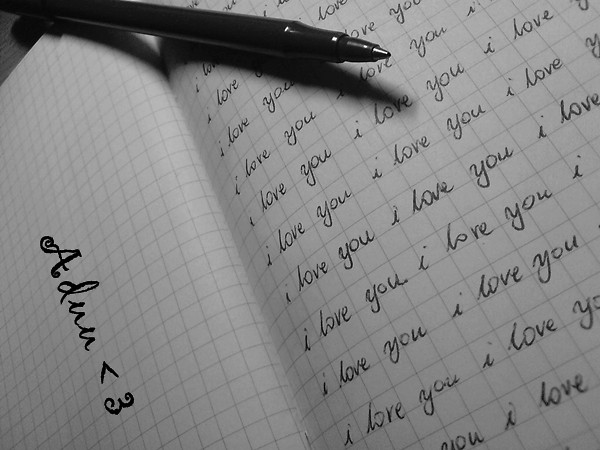 <3
i love
i love you i love you
i love you i love you i
i love you i love you i
i love you i love you i love you
i love you i love you i love you
i love you i love you i love
i love you i love you i
i love you i love you
i love you i love yo
you i love